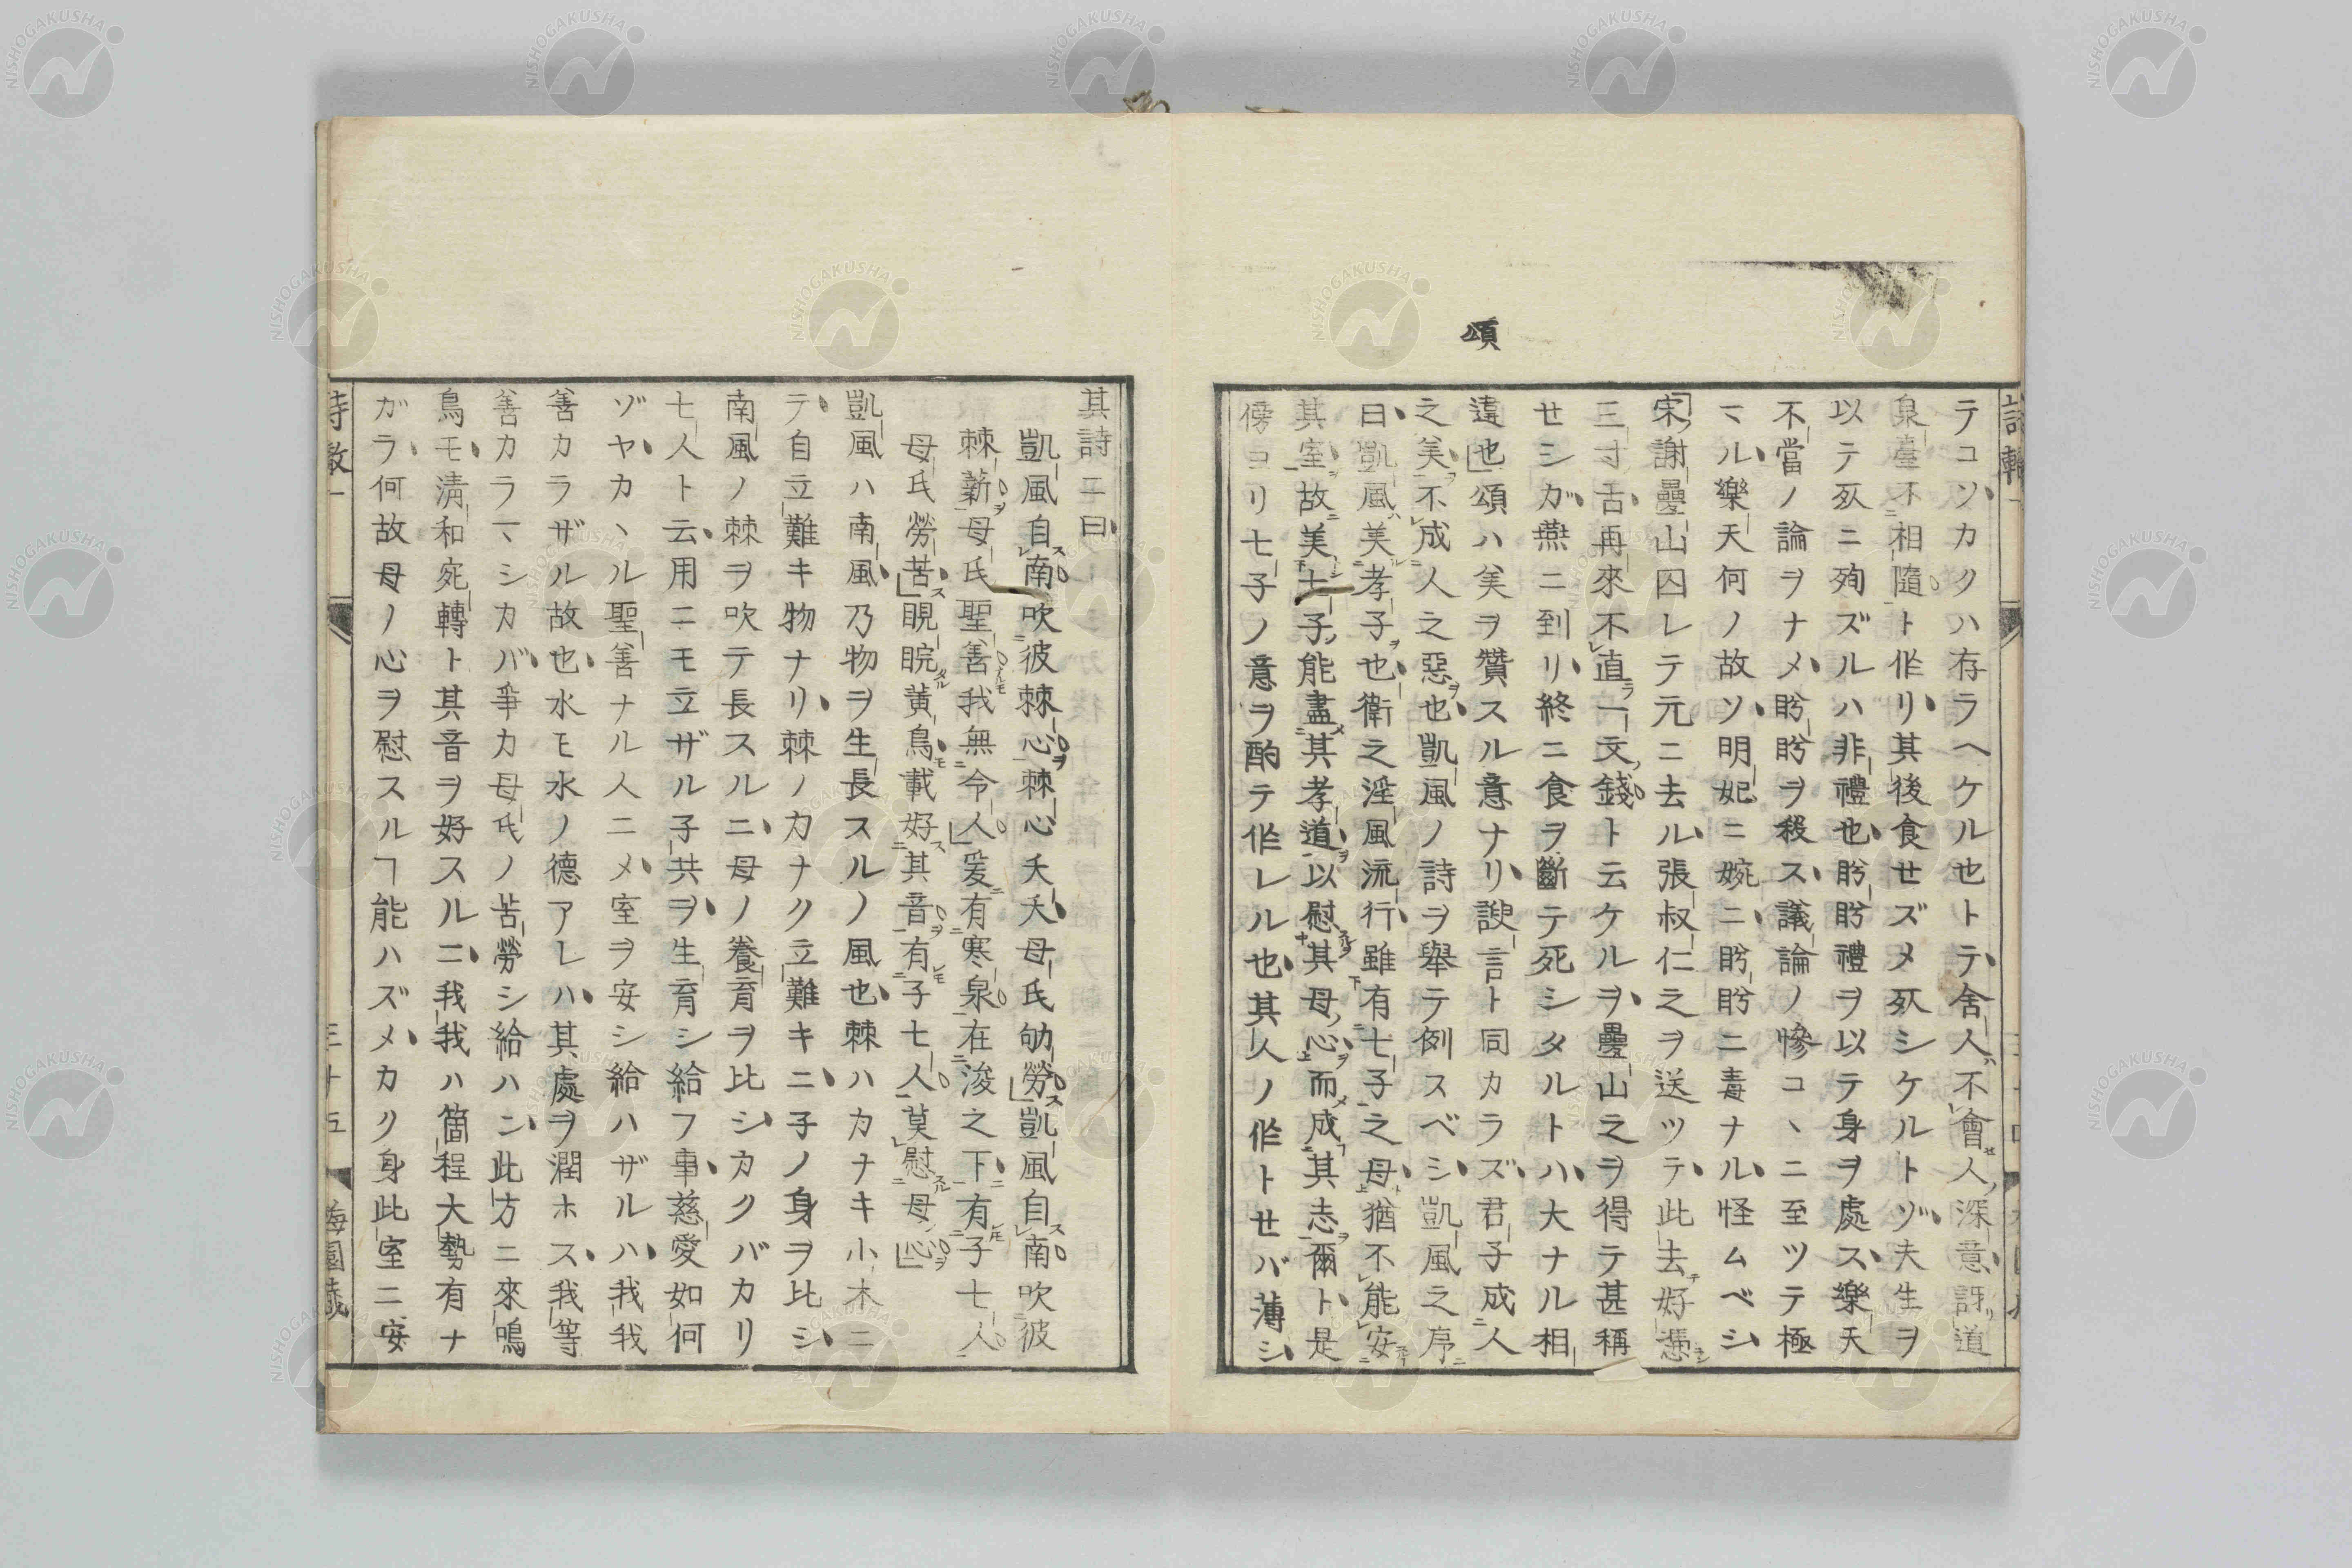 頌
テコソカクハ存ラヘケル也トテ舍人不會人深意訝道
泉臺不相隨ト作リ其後食せズメ死シケルトゾ夫生ヲ
以テ死ニ殉ズルハ非禮也盻盻禮ヲ以テ身ヲ處ス樂天
不當ノ論ヲナメ盻盻ヲ殺ス議論ノ慘コヽニ至ツテ極
マル樂天何ノ故ソ明妃ニ婉ニ盻盻ニ毒ナル怪ムベシ
宋謝疊山囚レテ元ニ去ル張叔仁之ヲ送ツテ此去好憑
三寸舌再來不直一文錢ト云ケルヲ疊山之ヲ得テ甚稱
せシガ燕ニ到リ終ニ食ヲ斷テ死シタルトハ大ナル相
違也頌ハ美ヲ贊スル意ナリ諛言ト同カラズ君子成人
之美不成人之惡也凱風ノ詩ヲ舉テ例スベシ凱風之序
曰凱風美孝子也衛之淫風流行雖有七子之母猶不能安
其室故美七子能盡其孝道以慰其母心而成其志爾ト是
傍ヨリ七子ノ意ヲ酌テ作レル也其人ノ作トせバ薄シ
其詩ニ曰
凱風自南吹彼棘心棘心夭夭母氏劬勞凱風自南吹彼
棘薪母氏聖善我無令人爰有寒泉在浚之下有子七人
母氏勞苦睍睆黃鳥載好其音有子七人莫慰母心
凱風ハ南風乃物ヲ生長スルノ風也棘ハカナキ小木ニ
テ自立難キ物ナリ棘ノ力ナク立難キニ子ノ身ヲ比シ
南風ノ棘ヲ吹テ長スルニ母ノ養育ヲ比シカクバカリ
七人ト云用ニモ立ザル子共ヲ生育シ給フ事慈愛如何
ゾヤカヽル聖善ナル人ニメ室ヲ安シ給ハザルハ我我
善カラザル故也水モ水ノ德アレハ其處ヲ潤ホス我等
善カラマシカバ爭カ母氏ノ苦勞シ給ハン此方ニ來鳴
鳥モ清和宛轉ト其音ヲ好スルニ我我ハ箇程大勢有ナ
ガラ何故母ノ心ヲ慰スルヿ能ハズメカク身此室ニ安
詩教一
三十五
梅園藏